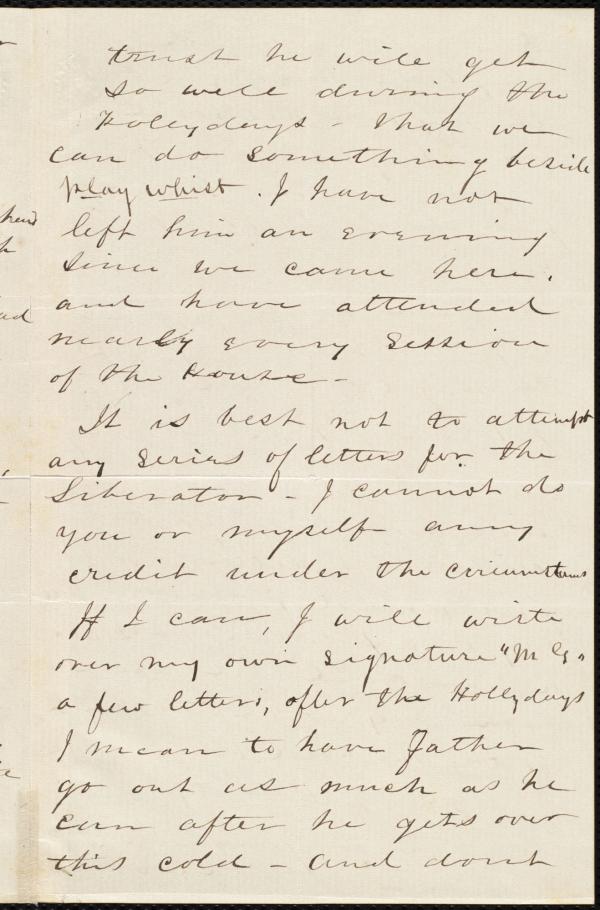 trust he will get
so well during the
Hollydays - that we
can do something beside
play whist. I have not
left him an evening
since we came here.
and have attended
nearly every Session
of the House -
It is best not to attempt
any series of letters for the
Liberator - I cannot do
you or myself any
credit under the circumstances
If I can, I will write
over my own signature "M G"
a few letters, after the Hollydays
I mean to have Father
go out as much as he
can after he gets over
this cold - and dont